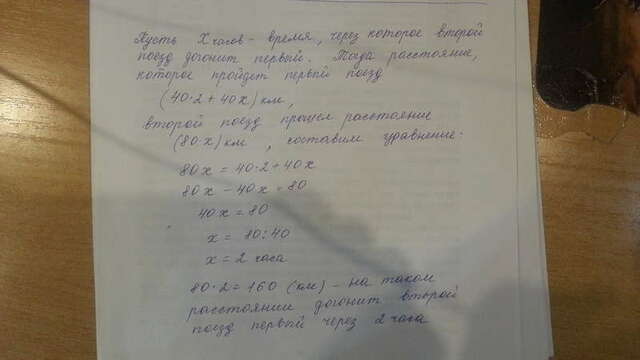 Пусть X часов - время, через которое второй
поезд догонит первый. Тогда расстояние,
которое пройдет первый поезд
(40·2 + 40x) км,
второй поезд прошел расстояние
(80·x) км, составим уравнение:
80x = 40·2 + 40x
80x - 40x = 80
40x = 80
x = 80:40
x = 2 часа
80·2 = 160 (км) - на таком
расстоянии догонит второй
поезд первый через 2 часа